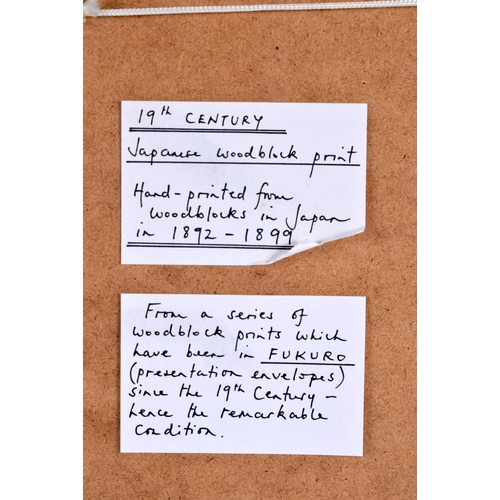 19th CENTURY
Japanese woodblock print
Hand-printed from
woodblocks in Japan
in 1892 - 1899
From a series of
woodblock prints which
have been in FUKURO
(presentation envelopes)
since the 19th Century -
hence the remarkable
condition.